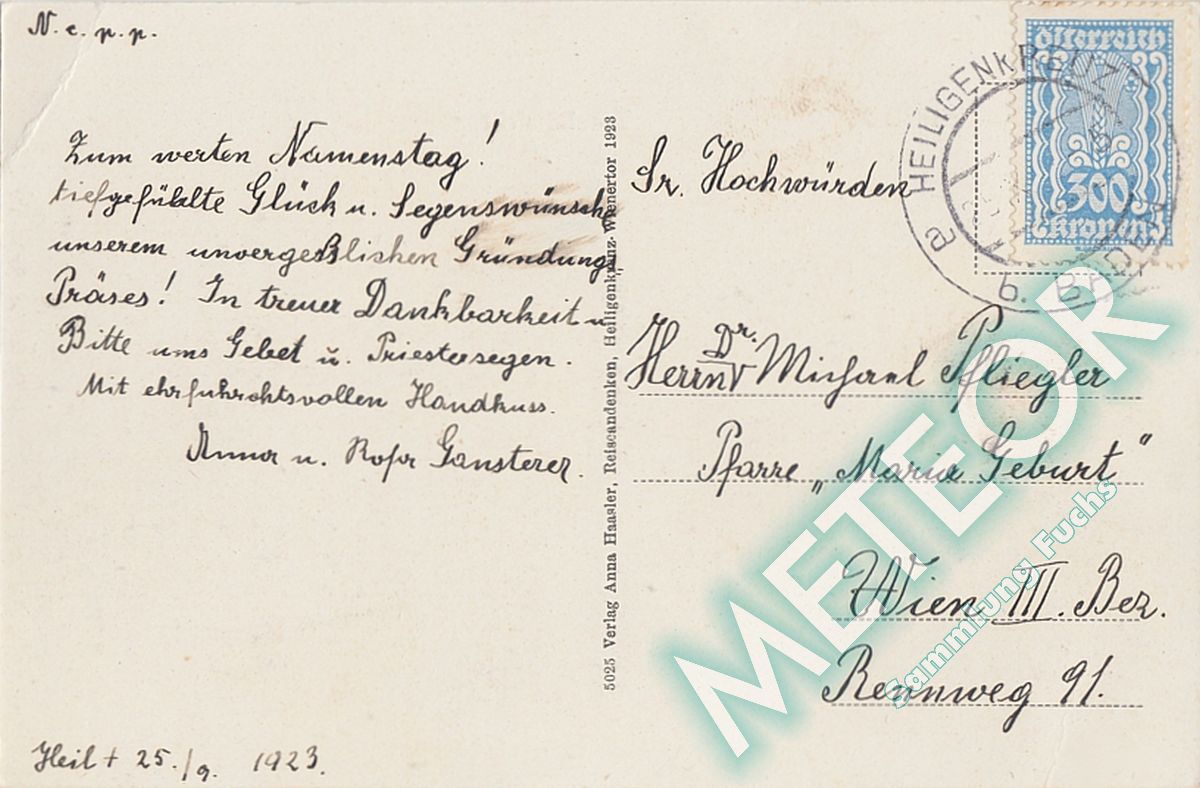 N. c. p. p.
Zum werten Namenstag!
tiefgefühlte Glück u. Segenswünsche
unserem unvergeßlichen Gründungs
Präses! In treuer Dankbarkeit u
Bitte ums Gebet u. Priestersegen.
Mit ehrfuhrchtsvollen Handkuss.
Anna u. Rosa Gansterer.
Heil + 25./9. 1923.
5025 Verlag Anna Haasler, Reiseandenken, Heiligenkreuz-Wienertor 1923
österreich
300
Kronen
a HEILIGENKREUZ b. BADEN
Sr. Hochwürden
Herrn Dr. Michael Pfliegler
Pfarre „Maria Geburt"
Wien III. Bez.
Rennweg 91.
METEOR
Sammlung Fuchs